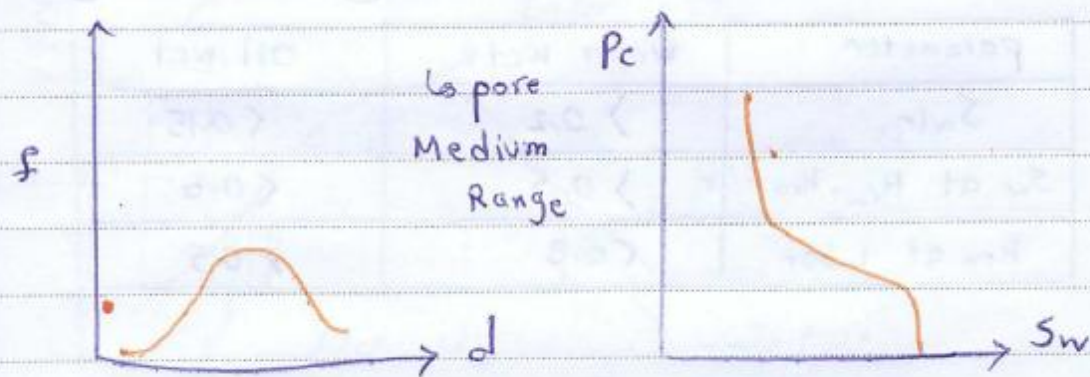 f
↳ pore
Medium
Range
d
Pc
Sw